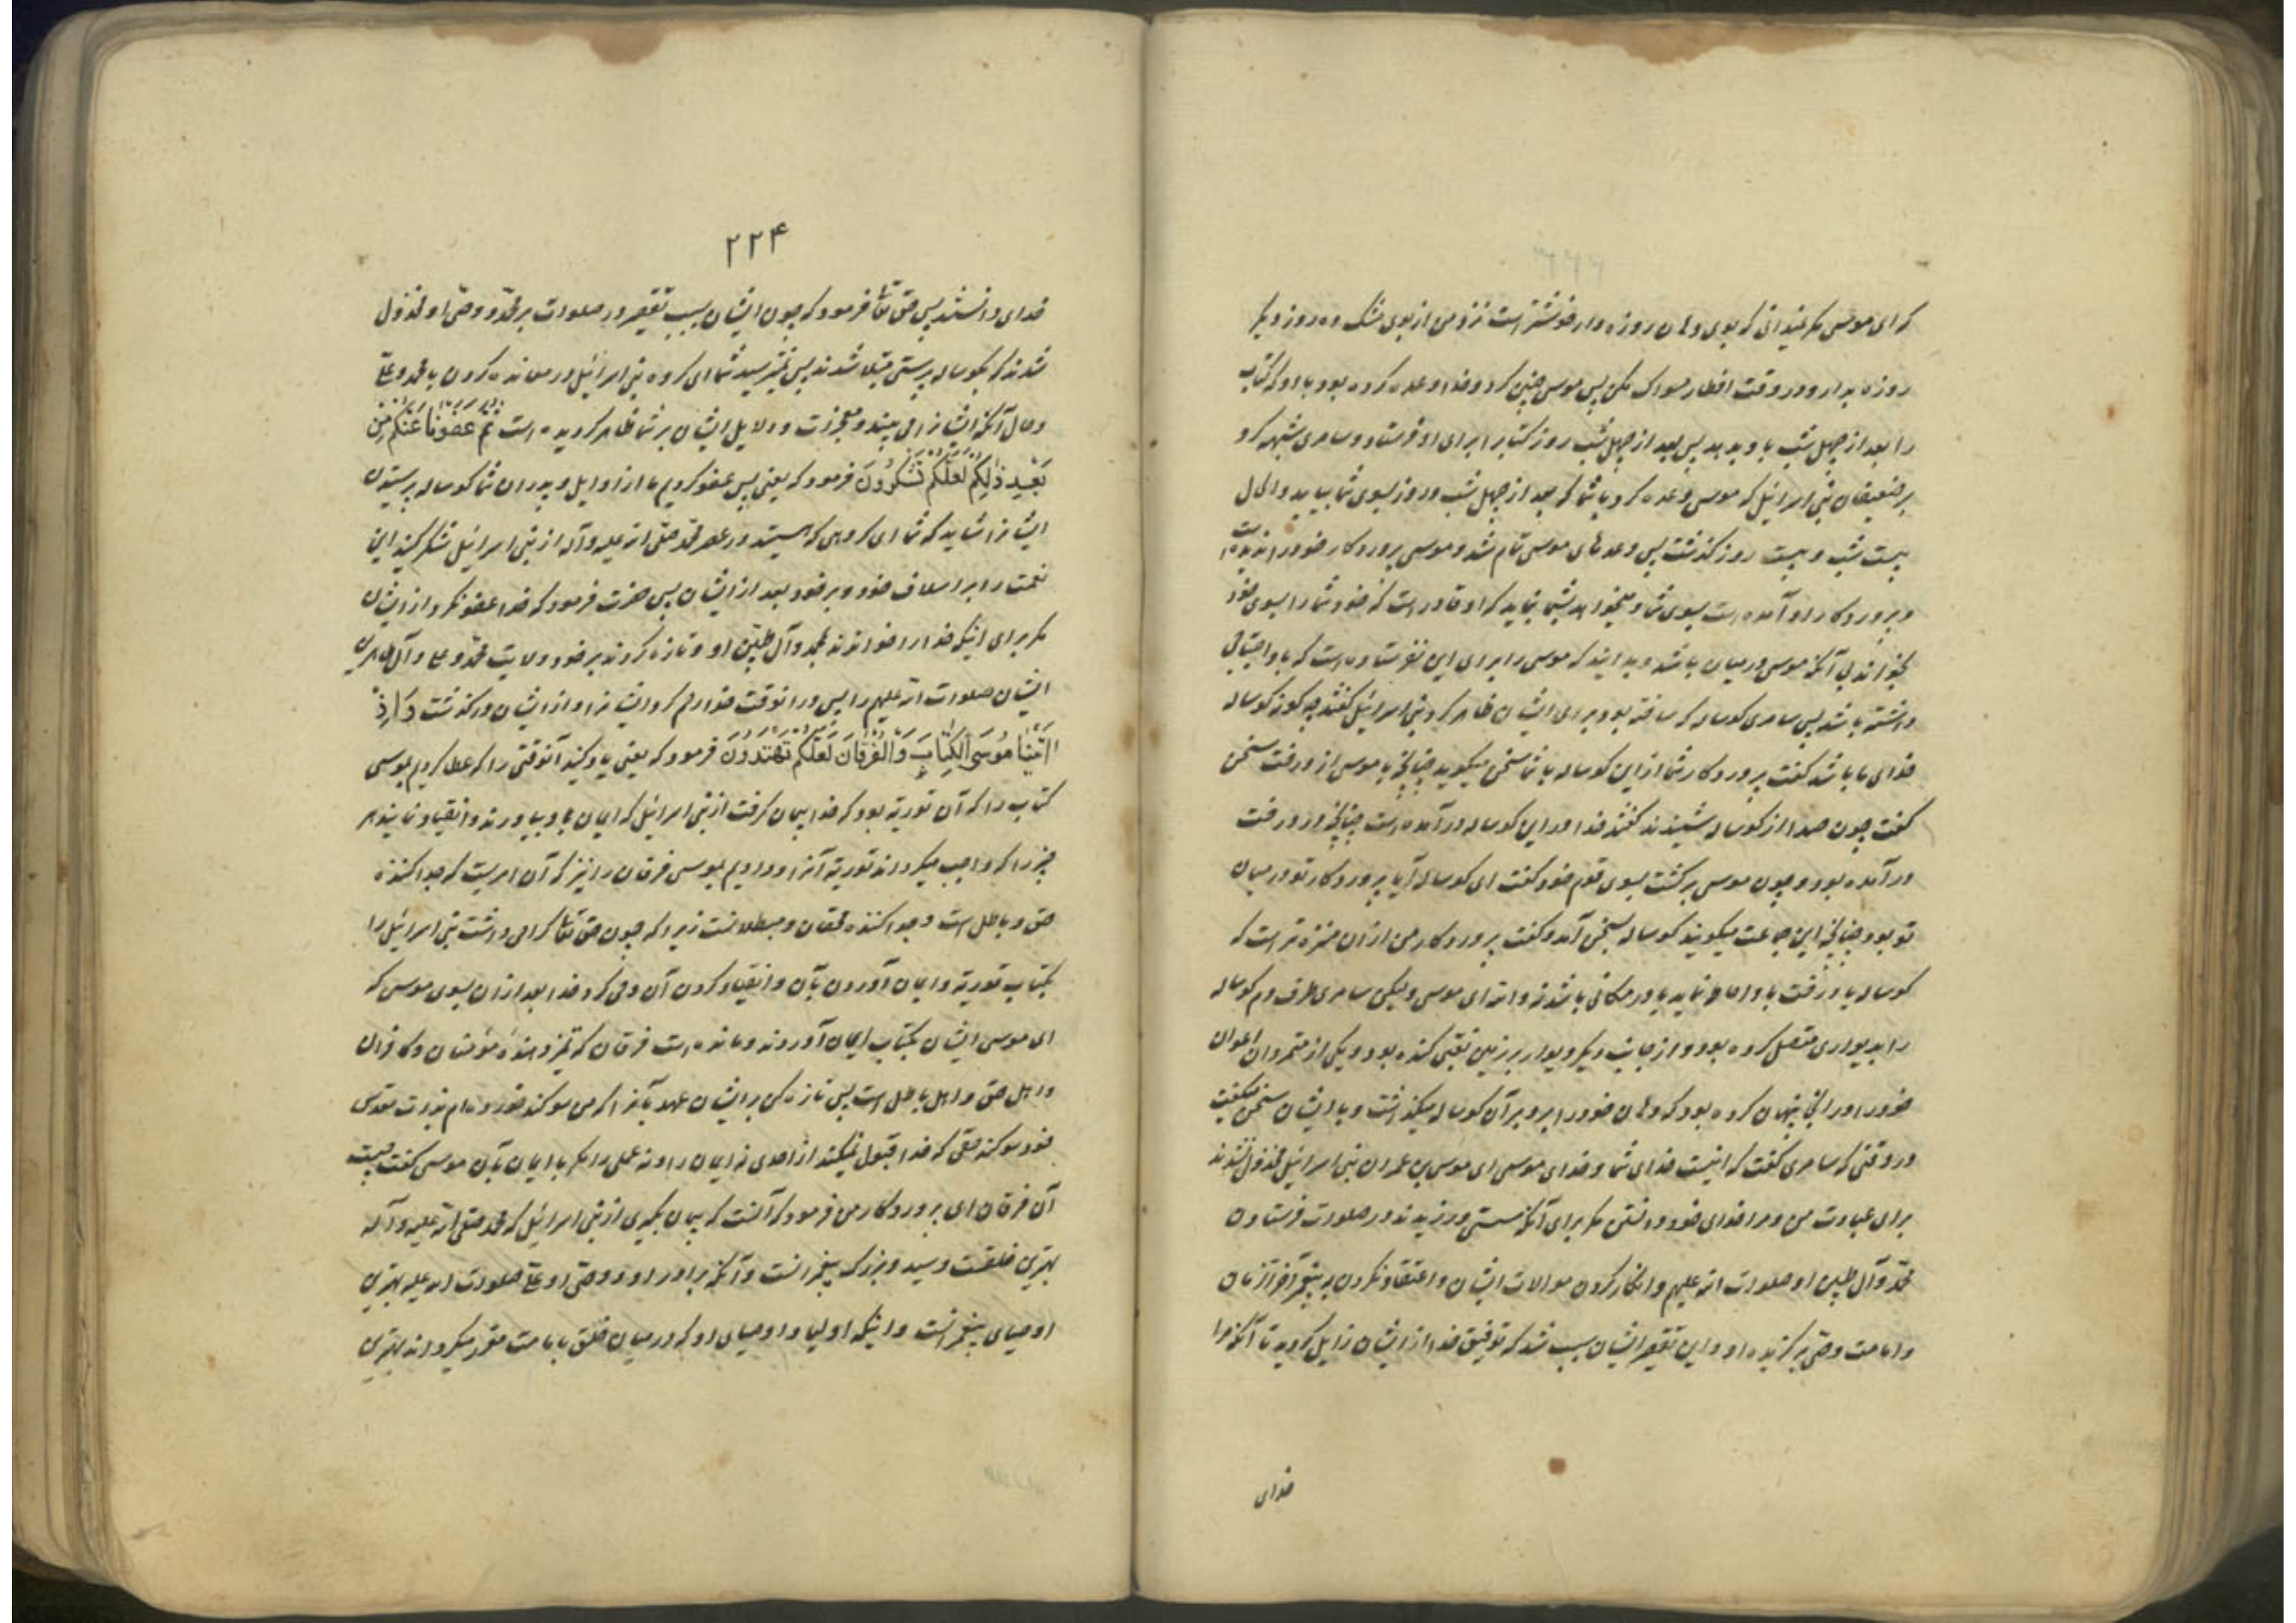 که ای موسی مگر نمیدانی که بوی دهان روزه دار خوشتر است نزد من از بوی مشک ده روز دیگر
روزه بدار و در وقت افطار مسواک مکن پس موسی چنین کرد و خدا وعده کرده بود با او که کتاب
را بعد از چهل شب باو بدهد پس بعد از چهل شب روز کتابرا برای او فرستاد و سامری شبهه کرد
بر ضعیفان بنی اسرائیل که موسی وعده کرد با شما که بعد از چهل شب و روز بسوی شما بیاید و الحال
بیست شب و بیست روز گذشت پس وعدهای موسی تمام شد و موسی پروردگار خود را ندیده است
و پروردگار او آمده است بسوی شما و میخواهد بشما بنماید که او قادر است که خود شما را بسوی خود
بخواند بی آنکه موسی در میان باشد و بدانید که موسی را برای این نفرستاده است که باو احتیاجی
داشته باشد پس سامری کوساله که ساخته بود برای ایشان ظاهر کرد بنی اسرائیل گفتند چه گونه کوساله
خدای ما باشد گفت پروردگار شما از این کوساله با شما سخن میگوید چنانچه با موسی از درخت سخن
گفت چون صدا از کوساله شنیدند گفتند خدا در این کوساله در آمده است چنانچه در درخت
در آمده بود و چون موسی برگشت بسوی قوم خود گفت ای کوساله آیا پروردگار تو در میان
تو بود چنانچه این جماعت میگویند کوساله بسخن آمد و گفت پروردگار من از ان منزه تر است که
کوساله یا درخت باو احاطه نماید یا در مکانی باشد نه والله ای موسی ولیکن سامری طرف دم کوساله
را بدیواری متصل کرده بود و از جانب دیگر دیوار بر زمین نقبی کنده بود و یکی از متمردان اعوان
خود را در انجا پنهان کرده بود که دهان خود را برو بر آن کوساله میگذاشت و با ایشان سخن میگفت
در وقتی که سامری گفت که اینست خدای شما و خدای موسی ای موسی بن عمران بنی اسرائیل مخذول نشدند
برای عبادت من و مرا خدای خود دانستن مگر برای آنکه سستی ورزیدند در صلوات فرستادن
محمد و آل طیبین او صلوات الله علیهم و انکار کردن موالات ایشان و اعتقاد نکردن به پیغمبر آخر الزمان
و امامت وصی برگزیده او و این تقصیر ایشان سبب شد که توفیق خدا از ایشان زایل گردید تا آنکه مرا
خدای
۲۲۴
خدای دانستند پس حق تعالی فرمود که چون ایشان بسبب تقصیر در صلوات بر محمد و وصی او مخذول
شدند که بکوساله پرستی مبتلا شدند پس نمیترسید شما ای گروه بنی اسرائیل در معانده کردن با محمد و علی
و حال آنکه ایشانرا می بیند و معجزات و دلایل ایشان بر شما ظاهر گردیده است ثُمَّ عَفَوْنَا عَنْكُمْ مِنْ
بَعْدِ ذٰلِكُمْ لَعَلَّكُمْ تَشْكُرُونَ فرمود که یعنی پس عفو کردیم ما از اوایل و پدران شما کوساله پرستیدن
ایشانرا شاید که شما ای گروهی که هستید در عصر محمد صلی الله علیه و آله از بنی اسرائیل شکر کنید این
نعمت را بر اسلاف خود و بر خود بعد از ایشان پس حضرت فرمود که خدا عفو نکرد از ایشان
مگر برای اینکه خدا را خواندند بمحمد و آل طیبین او و تازه کردند بر خود ولایت محمد و علی و آل طاهرین
ایشان صلوات الله علیهم را پس در انوقت خدا رحم کرد ایشانرا و از ایشان در گذشت وَاِذْ
اٰتَيْنَا مُوسَى الْكِتَابَ وَالْفُرْقَانَ لَعَلَّكُمْ تَهْتَدُونَ فرمود که یعنی یاد کنید آنوقتی را که عطا کردیم بموسی
کتاب را که آن توریة بود که خدا پیمان گرفت از بنی اسرائیل که ایمان باو بیاورند و انقیاد نمایند هر
چیز را که واجب میگرداند توریة آنرا و دادیم بموسی فرقان را نیز که آن امریست که جدا کننده
حق و باطل است و جدا کننده محقان و مبطلانست زیرا که چون حق تعالی گرامی داشت بنی اسرائیل را
بکتاب توریة و ایمان آوردن بآن و انقیاد کردن آن وحی کرد خدا بعد از ان بسوی موسی که
ای موسی ایشان بکتاب ایمان آوردند و مانده است فرقان که تمیز دهنده مؤمنان و کافران
و اهل حق و اهل باطل است پس تازه کن بر ایشان عهد بآنرا که من سوگند خورده ام بذات مقدس
خود سوگند حقی که خدا قبول نمیکند از احدی نه ایمان را و نه عملی را مگر با ایمان بآن موسی گفت چیست
آن فرقان ای پروردگار من فرمود که آنست که پیمان بگیری از بنی اسرائیل که محمد صلی الله علیه و آله
بهترین خلقست و سید و بزرگ پیغمبرانست و آنکه برادر او و وصی او علی صلوات الله علیه بهترین
اوصیای پیغمبرانست و اینکه اولیا و اوصیای او که در میان خلق بامامت مقرر میگرداند بهترین